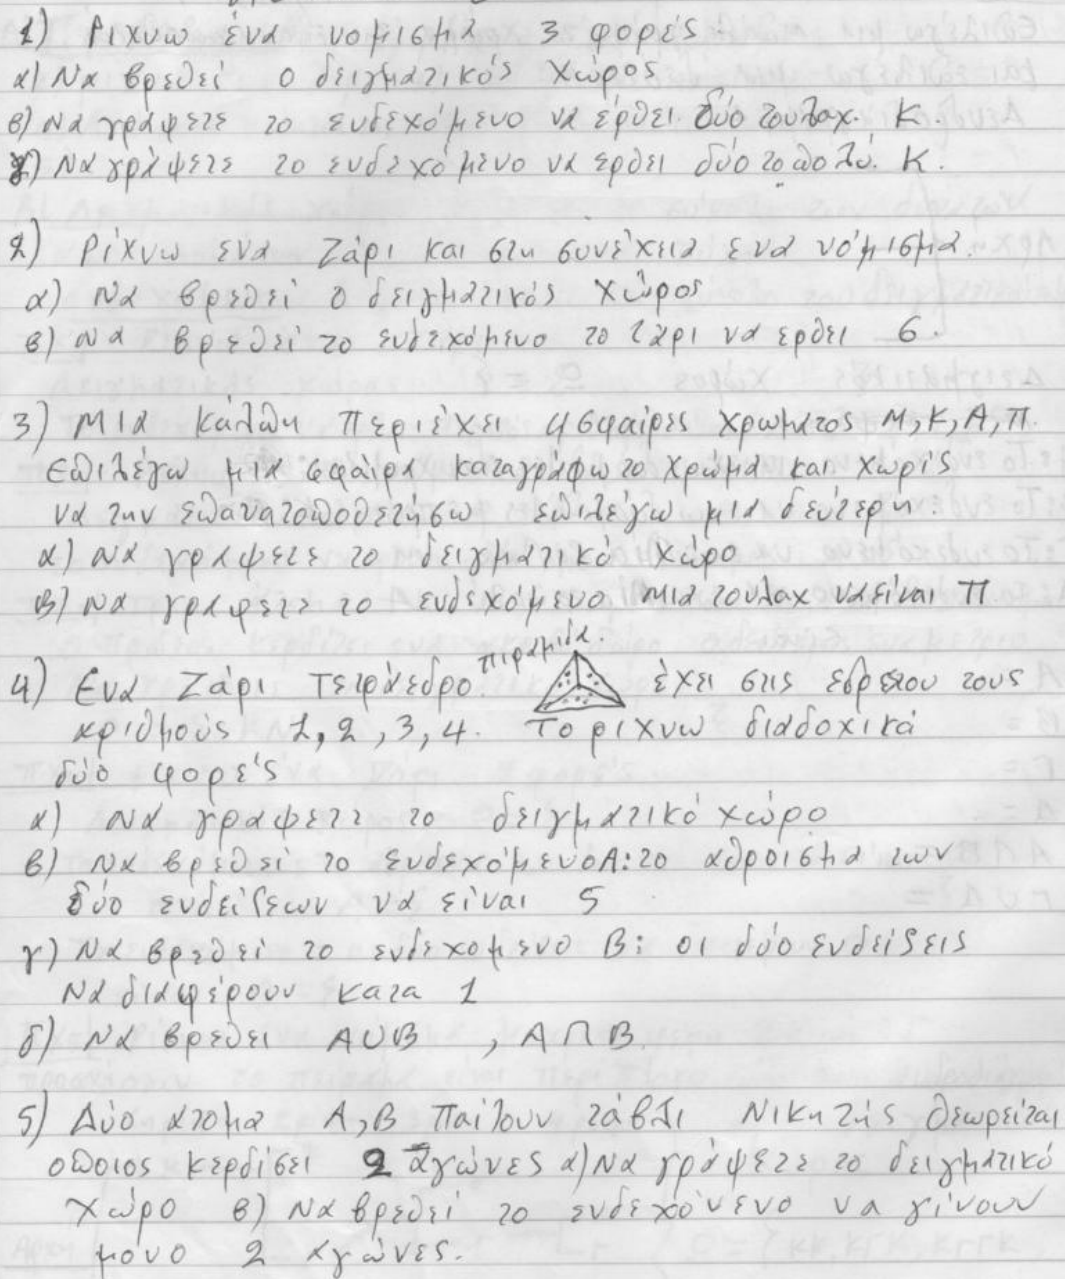 1) Ριχνω ένα νομισμα 3 φορές
α) Να βρεθεί ο δειγματικός χώρος
β) Να γράψετε το ενδεχόμενο να έρθει δύο τουλαχ. Κ.
γ) Να γράψετε το ενδεχόμενο να ερθει δύο το πολύ. Κ.
2) Ρίχνω ένα Ζάρι και στη συνέχεια ενα νόμισμα.
α) Να βρεθεί ο δειγματικός χώρος
β) Να βρεθεί το ενδεχόμενο το ζάρι να ερθει 6.
3) Μια κάλπη περιέχει 4 σφαίρες χρώματος Μ, Κ, Α, Π.
Επιλέγω μια σφαίρα καταγράφω το χρώμα και χωρίς
να την επανατοποθετήσω επιλέγω μια δεύτερη.
α) Να γράψετε το δειγματικό χώρο
β) Να γράψετε το ενδεχόμενο μια τουλαχ να είναι Π
πιραμίδα.
4) Ενα Ζάρι τετράεδρο έχει στις εδρες του τους
αριθμούς 1, 2, 3, 4. Το ριχνω διαδοχικά
δύο φορές
α) Να γράψετε το δειγματικό χώρο
β) Να βρεθεί το ενδεχόμενο Α: το αθροισμα των
δύο ενδείξεων να είναι 5
γ) Να βρεθεί το ενδεχομενο Β: οι δύο ενδείξεις
Να διαφέρουν κατα 1
δ) Να βρεθει Α∪Β , Α∩Β.
5) Δύο ατομα Α, Β Παίζουν τάβλι Νικητής θεωρείται
οποιος κερδίσει 2 αγώνες α) Να γράψετε το δειγματικό
χώρο β) Να βρεθεί το ενδεχόνενο να γίνουν
μονο 2 αγώνες.